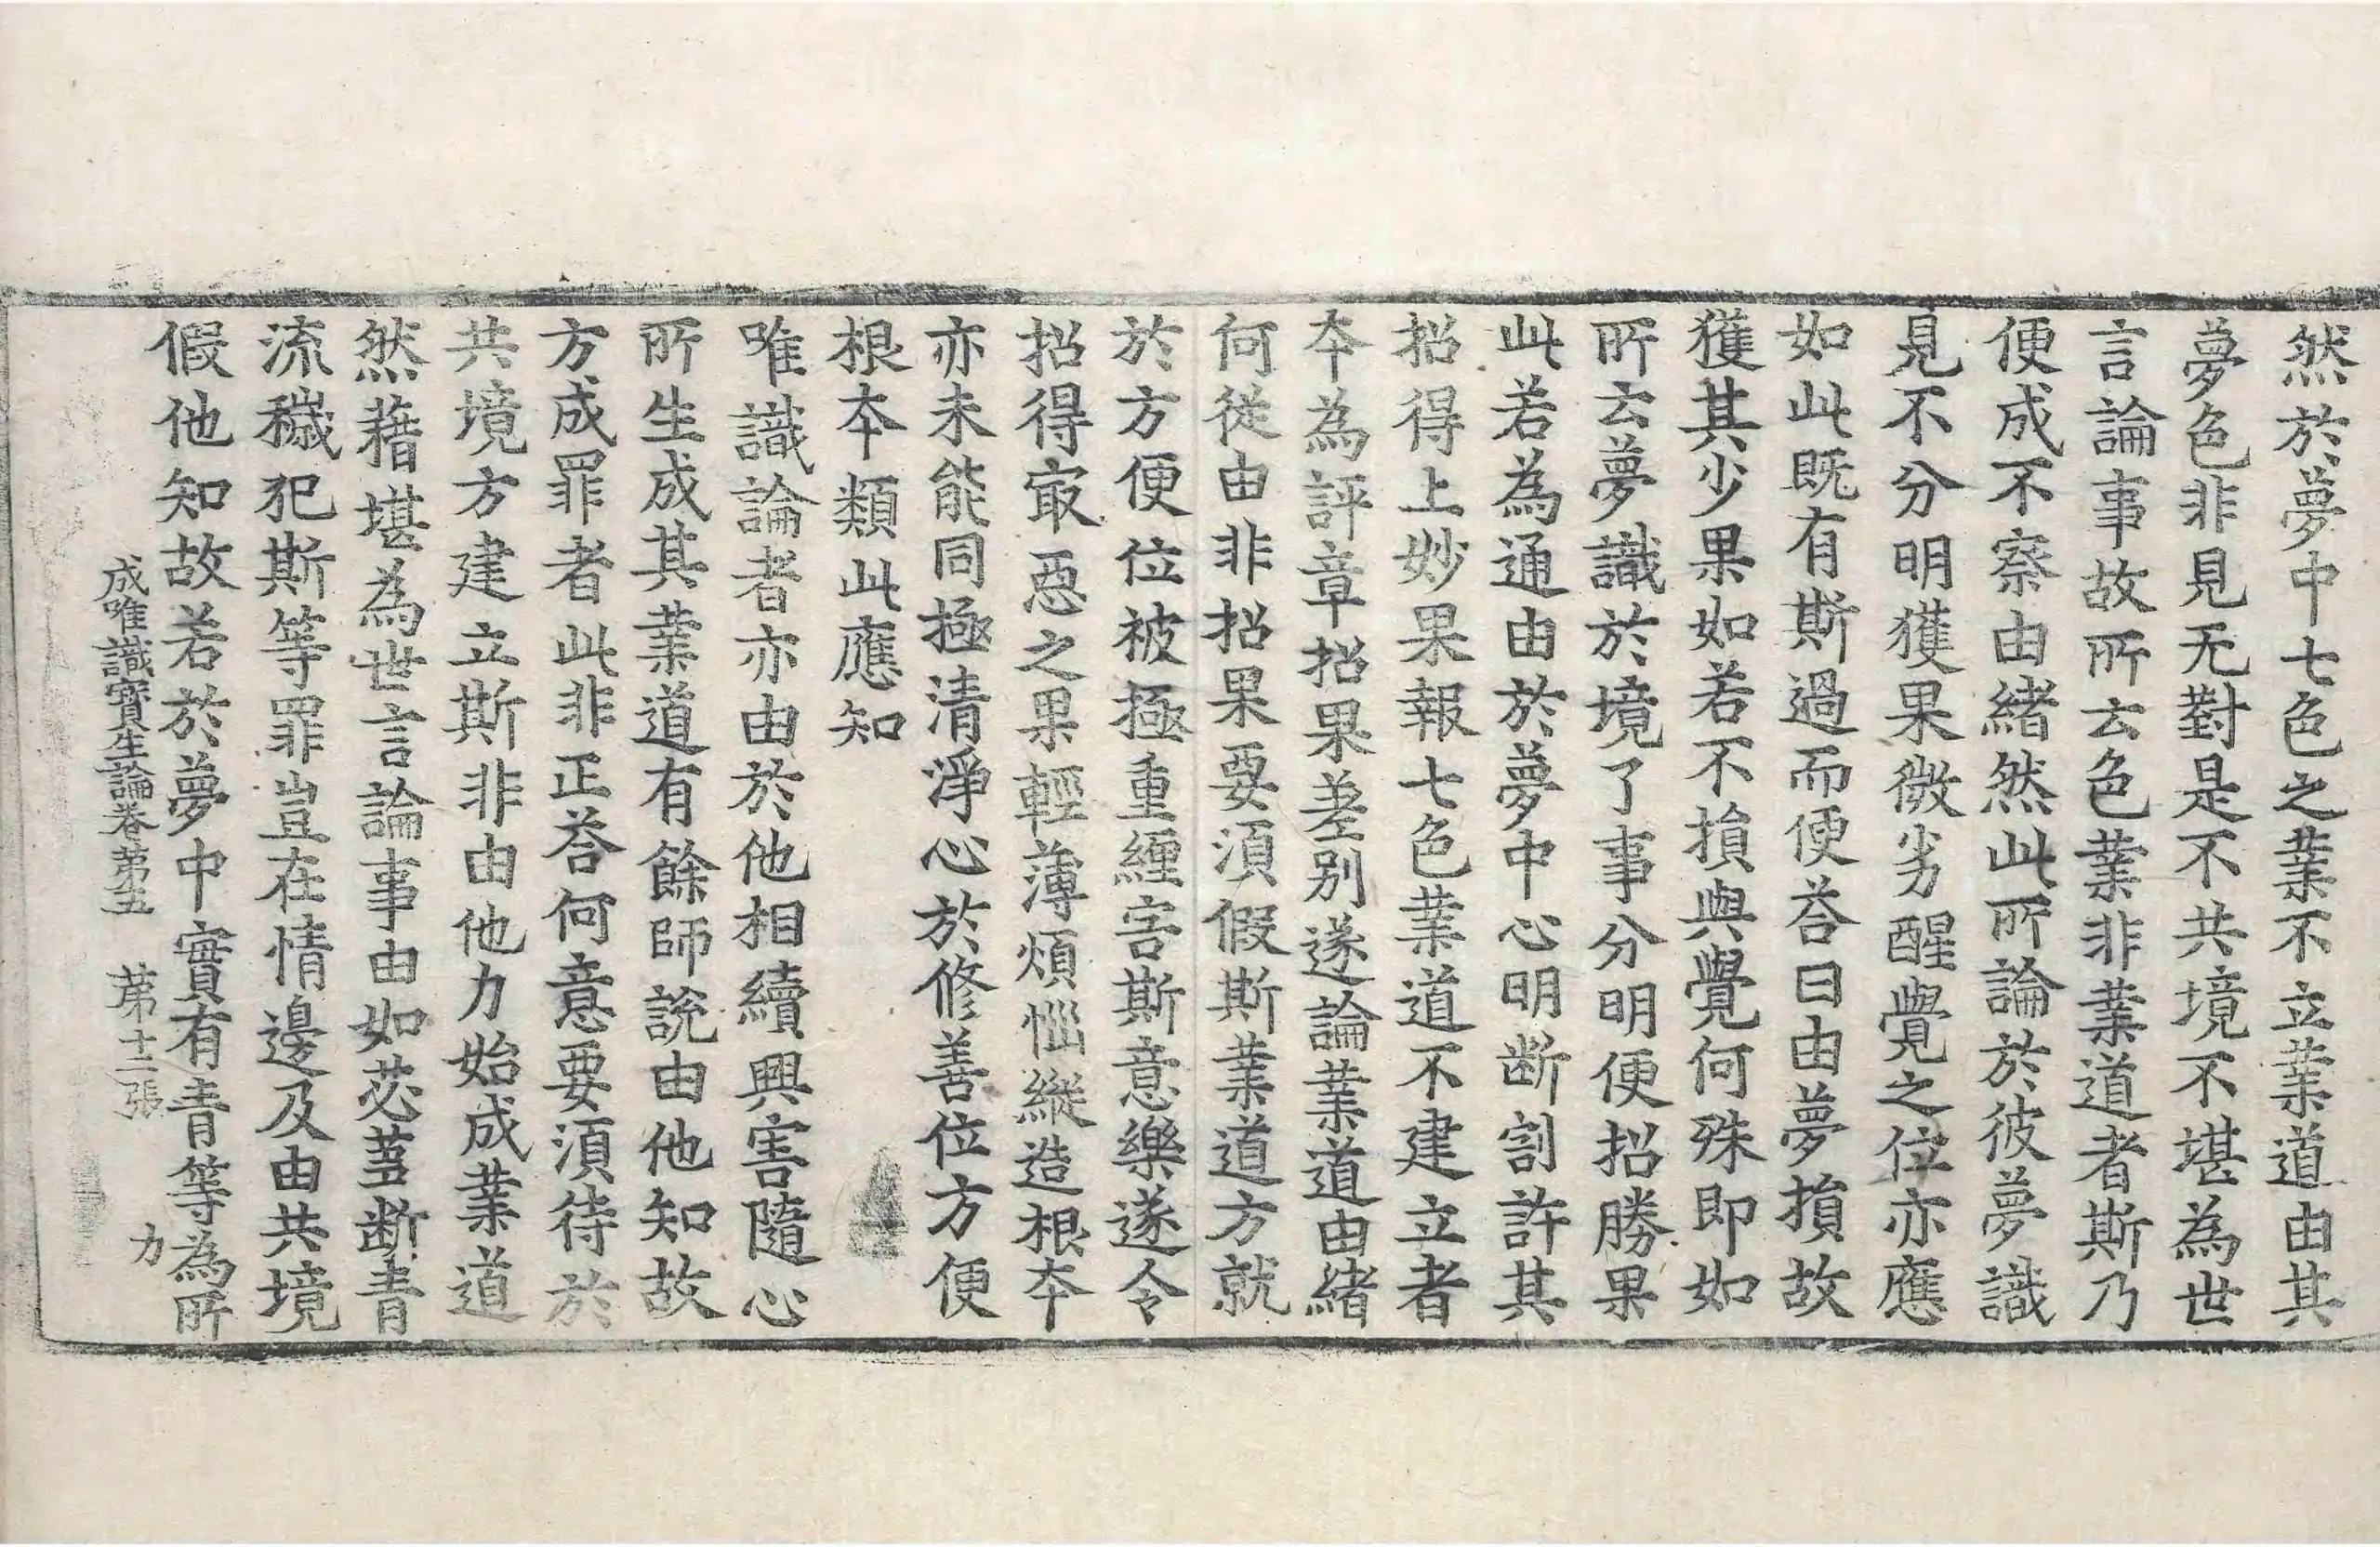 然於夢中七色之業不立業道由其
夢色非見无對是不共境不堪為世
言論事故所云色業非業道者斯乃
便成不察由緒然此所論於彼夢識
見不分明獲果微劣醒覺之位亦應
如此既有斯過而便荅曰由夢損故
獲其少果如若不損與覺何殊即如
所云夢識於境了事分明便招勝果
此若為通由於夢中心明断割許其
招得上妙果報七色業道不建立者
本為評章招果差别遂論業道由緒
何從由非招果要須假斯業道方就
於方便位被極重纏害斯意樂遂令
招得冣惡之果輕薄煩惱縱造根本
亦未能同極清淨心於修善位方便
根本類此應知
唯識論者亦由於他相續興害隨心
所生成其業道有餘師說由他知故
方成罪者此非正荅何意要須待於
共境方建立斯非由他力始成業道
然藉堪為世言論事由如苾蒭断青
流穢犯斯等罪豈在情邊及由共境
假他知故若於夢中實有青等為所
成唯識寶生論卷苐五 苐十二張 力